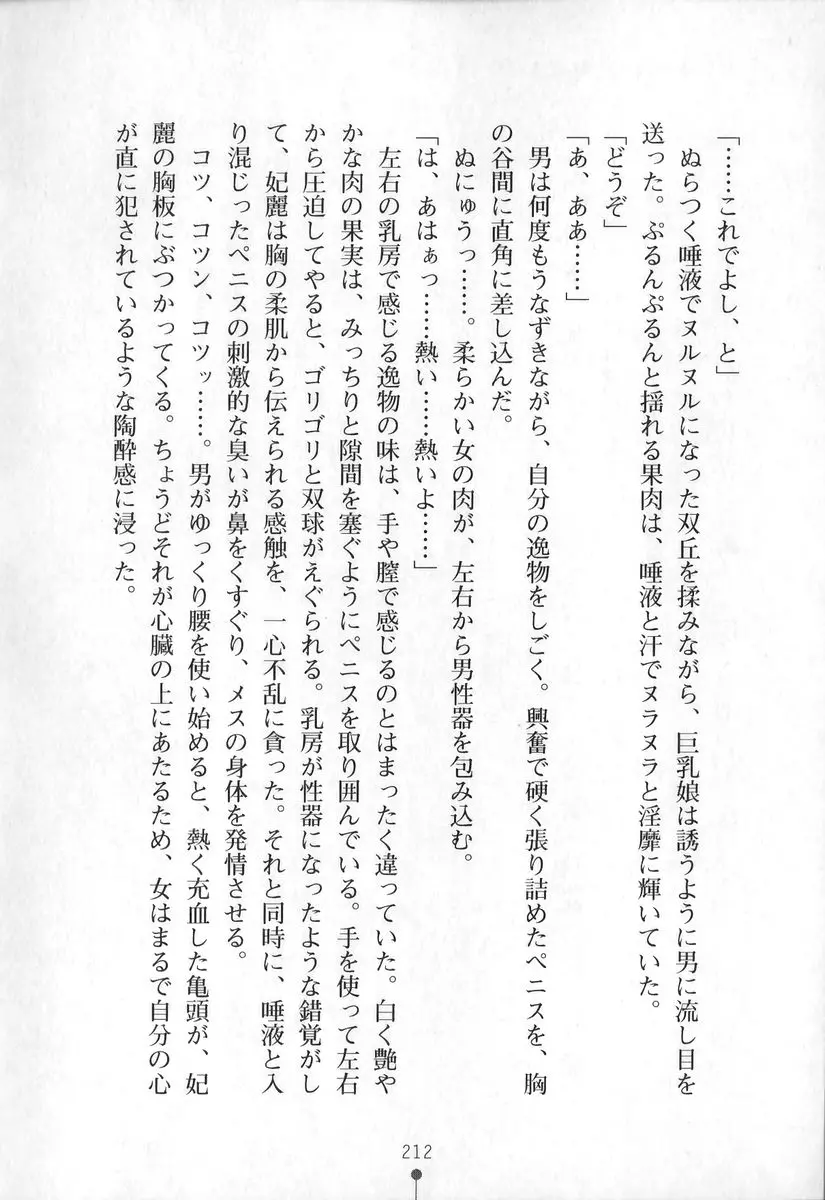 「……これでよし、と」
　ぬらつく唾液でヌルヌルになった双丘を揉みながら、巨乳娘は誘うように男に流し目を
送った。ぷるんぷるんと揺れる果肉は、唾液と汗でヌラヌラと淫靡に輝いていた。
「どうぞ」
「あ、ああ……」
　男は何度もうなずきながら、自分の逸物をしごく。興奮で硬く張り詰めたペニスを、胸
の谷間に直角に差し込んだ。
　ぬにゅうっ……。柔らかい女の肉が、左右から男性器を包み込む。
「は、あはぁっ……熱い……熱いよ……」
　左右の乳房で感じる逸物の味は、手や膣で感じるのとはまったく違っていた。白く艶や
かな肉の果実は、みっちりと隙間を塞ぐようにペニスを取り囲んでいる。手を使って左右
から圧迫してやると、ゴリゴリと双球がえぐられる。乳房が性器になったような錯覚がし
て、妃麗は胸の柔肌から伝えられる感触を、一心不乱に貪った。それと同時に、唾液と入
り混じったペニスの刺激的な臭いが鼻をくすぐり、メスの身体を発情させる。
　コツ、コツン、コツッ……。男がゆっくり腰を使い始めると、熱く充血した亀頭が、妃
麗の胸板にぶつかってくる。ちょうどそれが心臓の上にあたるため、女はまるで自分の心
が直に犯されているような陶酔感に浸った。
212